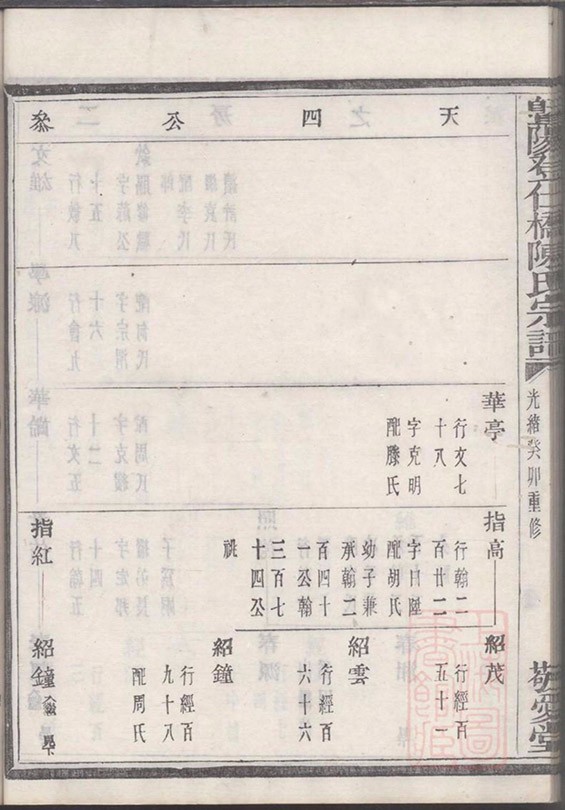 暨陽孝仁橋陳氏宗譜
光緒癸卯重修
敬愛堂
天四公叅
華亭
行文七
十八
字克明
配滕氏
指高
行翰二
百廿二
字曰陞
配胡氏
幼子兼
承翰二
百四十
一公翰
三百七
十四公
祧
紹茂
行經百
五十二
紹雲
行經百
六十六
紹鐘
行經百
九十八
配周氏
指紅
紹鐘